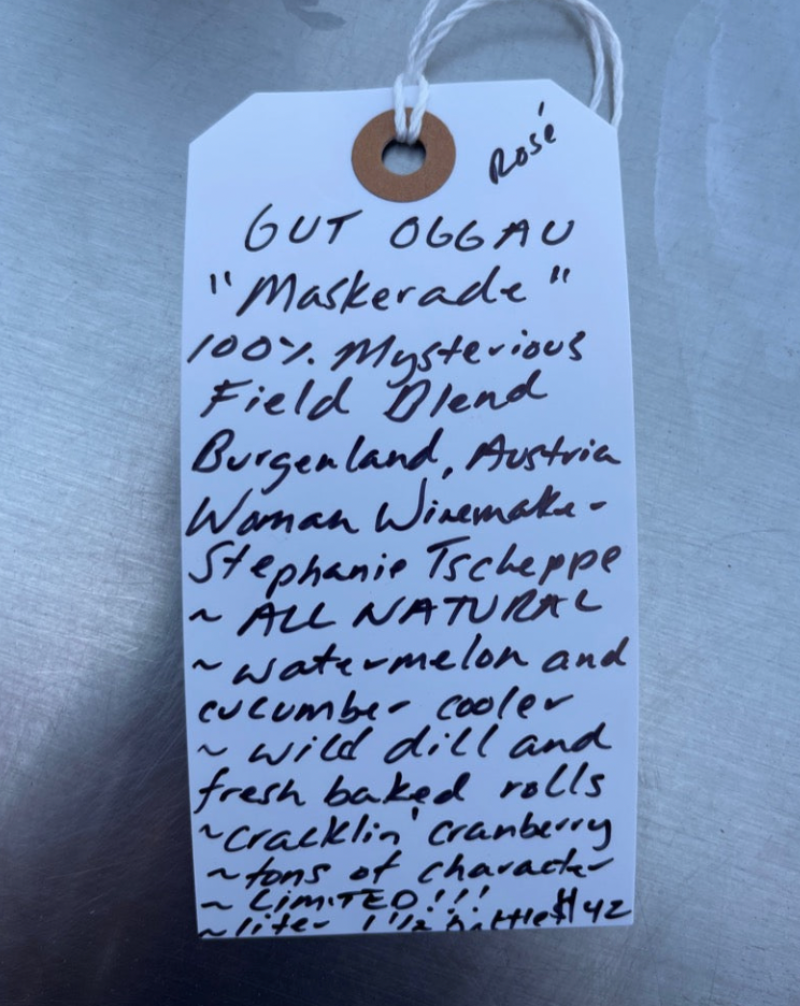 Rosé
GUT OGGAU
"Maskerade"
100% Mysterious
Field Blend
Burgenland, Austria
Woman Winemaker
Stephanie Tscheppe
~ ALL NATURAL
~ watermelon and
cucumber cooler
~ wild dill and
fresh baked rolls
~cracklin' cranberry
~tons of character
~ LIMITED!!!
~liter 1 1/2 bottle $42